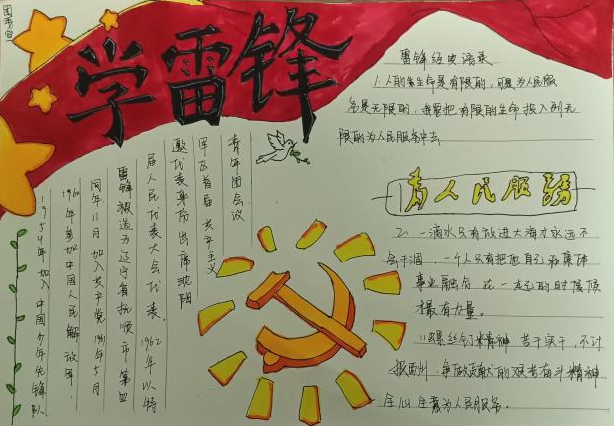 学雷锋
雷锋经典语录
1.人的生命是有限的,可是为人民服
务是无限的,我要把有限的生命投入到无
限的为人民服务中去
为人民服务
2、一滴水只有放进大海才永远不
会干涸,一个人只有把他自己和集体
事业融合在一起的时候
才最有力量。
螺丝钉精神 苦干实干,不计
报酬,争做贡献的艰苦奋斗精神
全心全意为人民服务。
青年团会议
军区首届 共产主义
邀代表身份出席沈阳
届人民代表大会代表。1962年以特
雷锋被选为辽宁省抚顺市第四
同年11月加入共产党 1961年5月
1960年参加中国人民解放军。
1954年加入中国少年先锋队